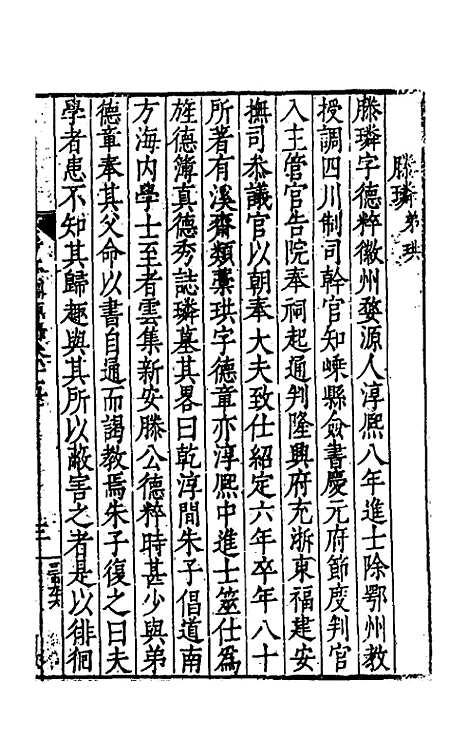 滕璘弟珙
滕璘字德粹徽州婺源人淳熙八年進士除鄂州教
授調四川制司幹官知嵊縣僉書慶元府節度判官
入主管官告院奉祠起通判隆興府充浙東福建安
撫司叅議官以朝奉大夫致仕紹定六年卒年八十
所著有溪齋類藁珙字德章亦淳熙中進士筮仕爲
旌德簿真德秀誌璘墓其畧曰乾淳間朱子倡道南
方海内學士至者雲集新安滕公德粹時甚少與弟
德章奉其父命以書自通而謁教焉朱子復之曰夫
學者患不知其歸趣與其所以蔽害之者是以徘徊